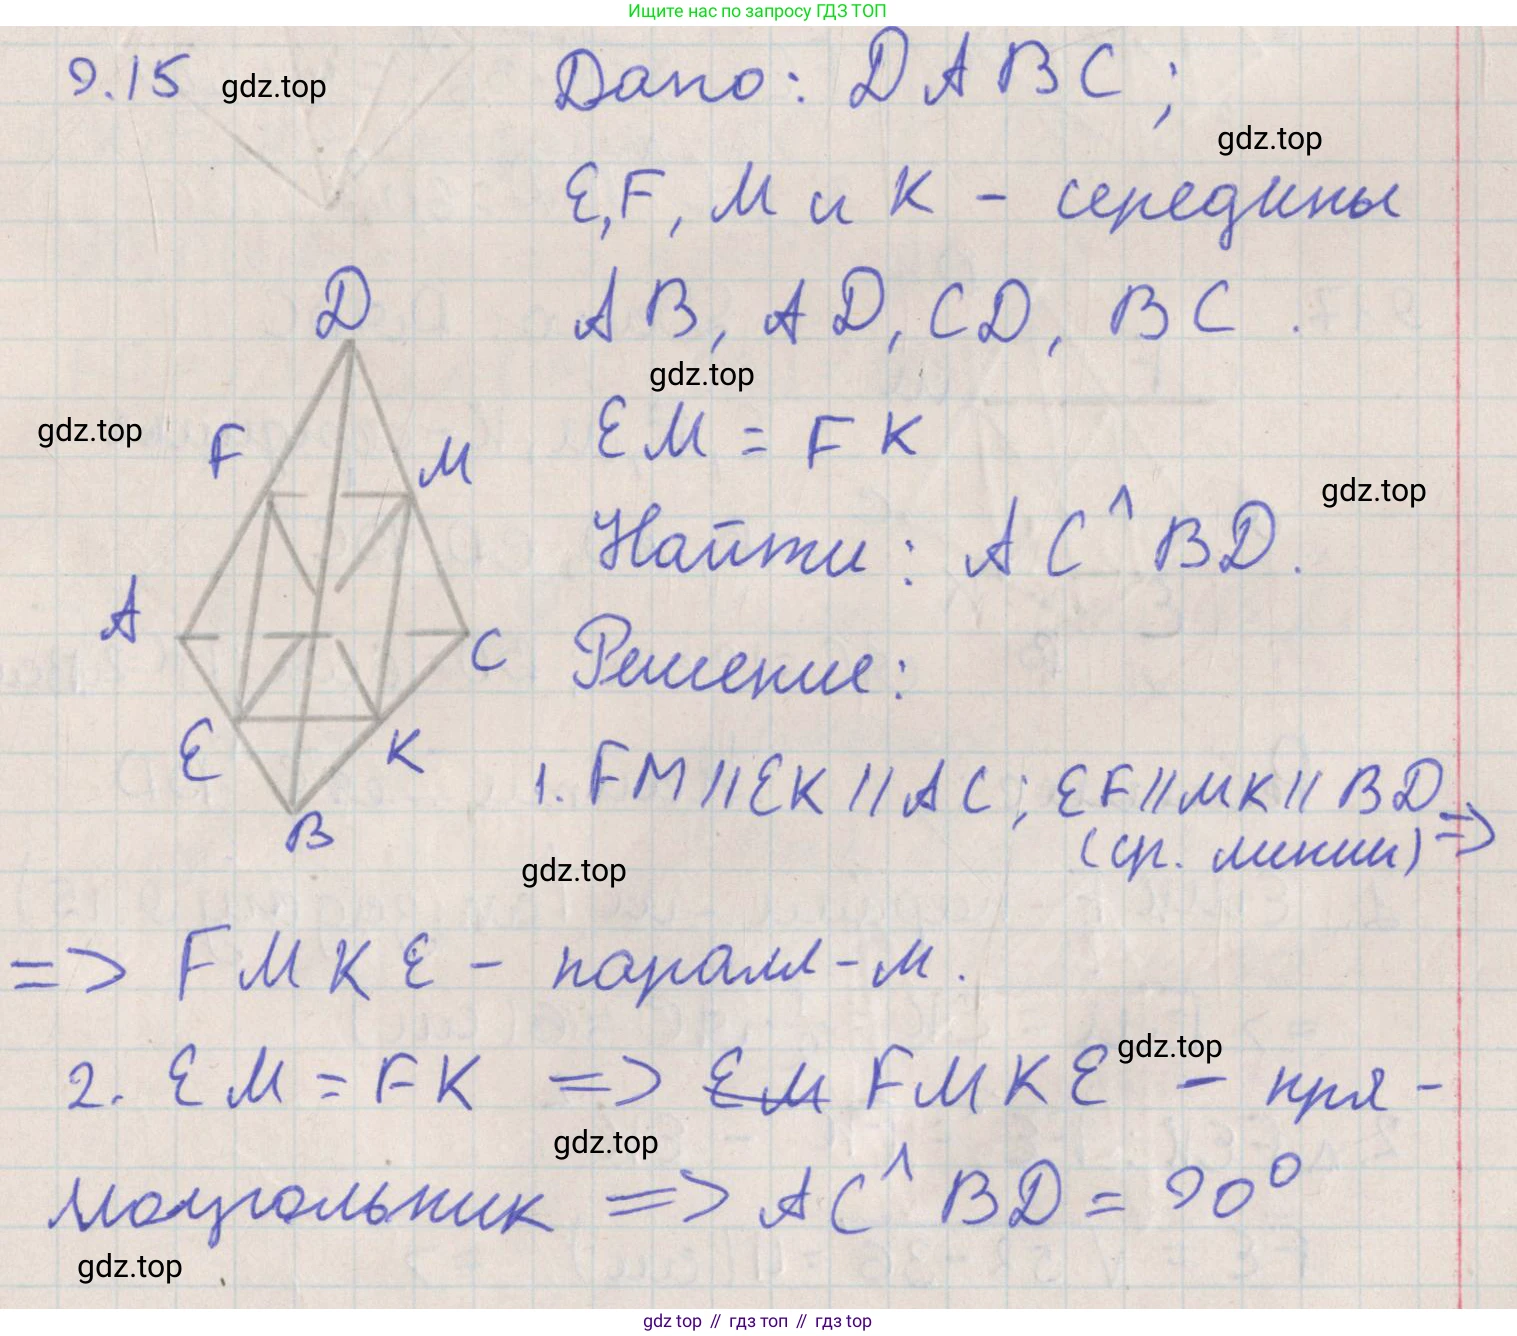 Ищите нас по запросу ГДЗ ТОП
9.15 gdz.top Дано: DABC;
gdz.top
E, F, M и K - середины
D AB, AD, CD, BC.
gdz.top
gdz.top F M EM = FK
gdz.top
Найти: AC^BD.
A C Решение:
E K 1. FM//EK//AC; EF//MK//BD
B (ср. линии) =>
gdz.top
=> FMKE - паралл-м.
gdz.top
2. EM = FK => EM FMKE - пря-
gdz.top
моугольник => AC^BD = 90°
gdz.top
gdz top // гдз топ // гдз top